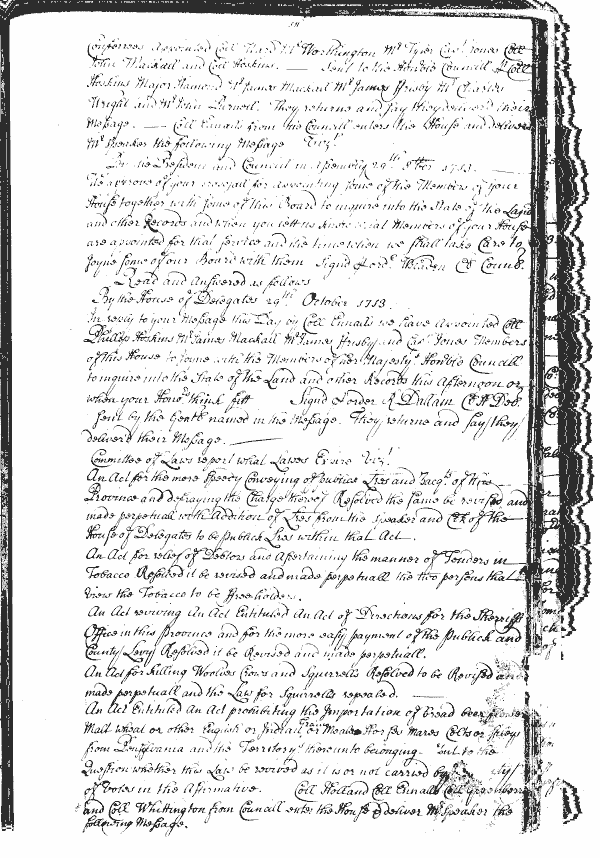 Conferrees appointed Coll Ward Mr Worthington Mr Tyler Capt Jones Coll
John Mackall and Coll Hoskins. — Sent to the Honble Council by Coll
Hoskins Major Hamond Mr James Mackall Mr James Frisby Mr Charles
Wright and Mr John They returne and say they delivered their
Message. — Coll Ennalls from the Councill enters the House and delivers
Mr Speaker the following Message Vizt
By the President and Council in Assembly 29th 8ber 1713.
We approve of your proposall for appointing some of the Members of your
House together with some of this Board to inquire into the State of the Land
and other Records and when you lett us know what Members of your House
are appointed for that service and the time when we shall take Care to
joyne some of our Board with them Signd p ordr W Bladen Cl Counc.
Read and Answered as follows
By the House of Delegates 29th October 1713.
In reply to your Message this Day by Coll Ennalls we have appointed Coll
Phillip Hoskins Mr James Mackall Mr James Frisby and Capt Jones Members
of this House to joyne with the Members of her Majestys Honble Councill
to inquire into the State of the Land and other Records this Afternoon or
when your Honrs think fitt Signd p order R Dallam Cl H Del.
Sent by the Gentl named in the Message. They returne and say they
deliver'd their Message. —
Committee of Laws report what Lawes Expire Vizt
An Act for the more speedy Conveying of publick Lres and pacqts of this
Province and defraying the Charge thereof Resolved the same be revised and
made perpetuall with Addition of Lres from the Speaker and Clk of the
House of Delegates to be publick Lres within that Act.
An Act for relief of Debtors and Assertaining the manner of Tenders in
Tobacco Resolved it be revised and made perpetuall the two persons that
view the Tobacco to be ffreeholders.
An Act reviving An Act Entituled An Act of Directions for the Sherriffs
Office in this Province and for the more easy payment of the publick and
County Levy Resolved it be Revised and made perpetuall.
An Act for killing Woolves Crows and Squirrells Resolved to be Revised and
made perpetuall and the Law for Squirrells repealed. —
An Act Entituled An Act prohibiting the Importation of Bread beer flower
Malt wheat or other English or Indian Grain or Meale Horses Mares Colts or fillys
from Pensilvania and the Territorys thereunto belonging. Putt to the
Question whether this Law be revived as it is or not carried by
of Votes in the Affirmative. Coll Holland Coll Ennalls Coll Greenberry
and Coll Whittington from Councill enter the House & deliver Mr Speaker the
following Message.